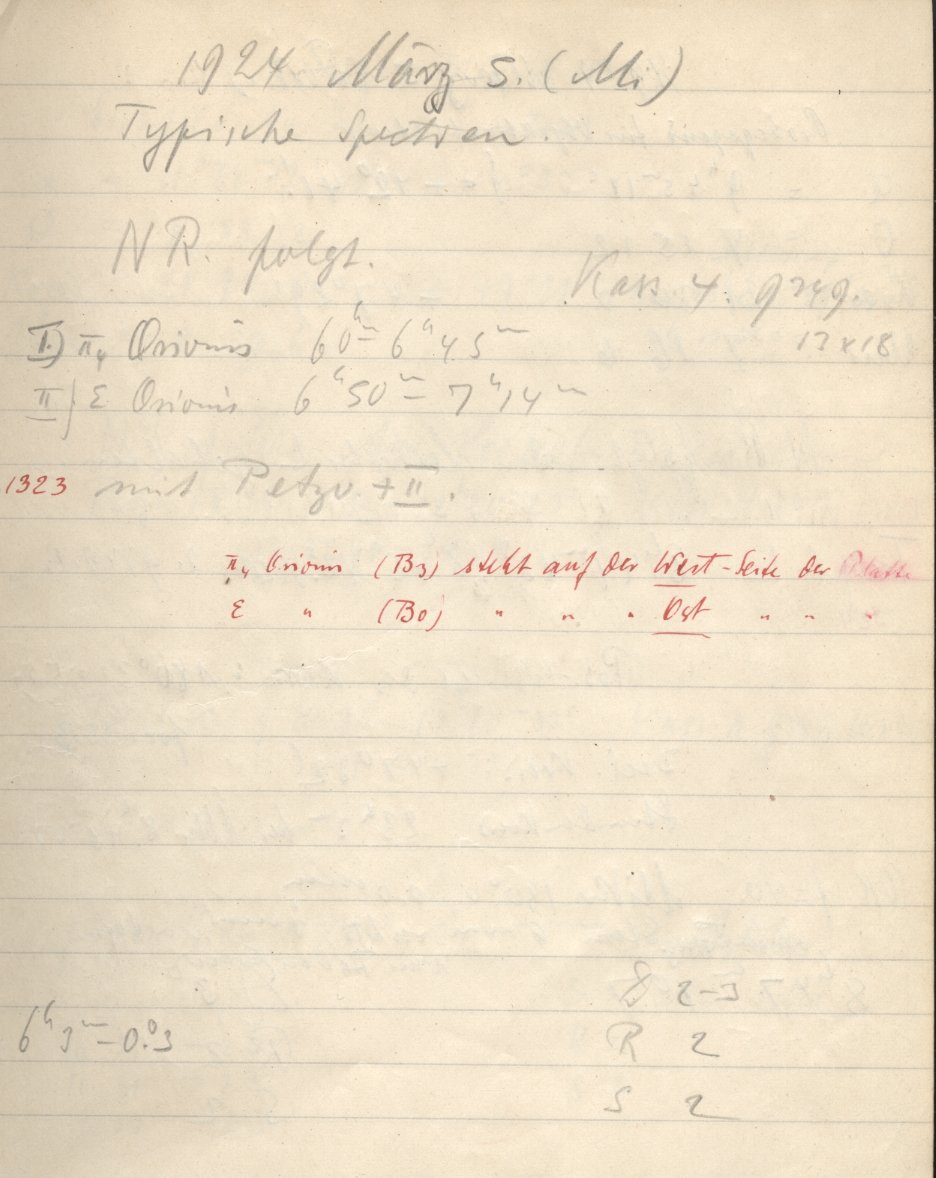 1924 März 5. (Mi)
Typische Spectren
NR. folgt.
Kass. 4. 9249.
I.) π4 Orionis 6h0m – 6h45m 13 x 18
II) ε Orionis 6h50m – 7h14m
1323 mit Petzv + II.
π4 Orionis (B3) steht auf der West-Seite der Platte
ε " (B0) " " " Ost " " "
6h3m – 0.°3
D 2-3
R 2
S 2